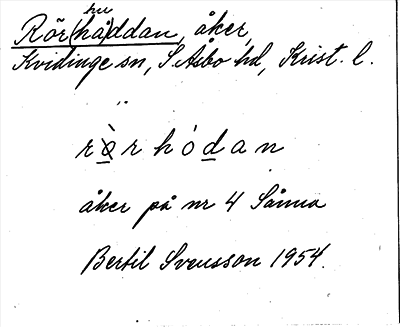 hu
Rör(hå)ddan, åker,
Kvidinge sn, S. Åsbo hd, Krist. l.
rö̀rhódan
åker på nr 4 Sånna
Bertil Svensson 1954.